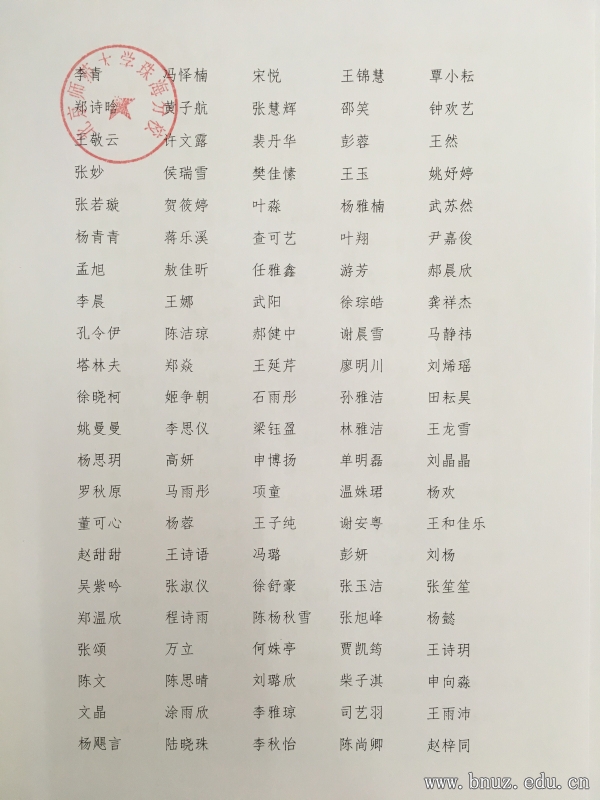 北京师范大学珠海分校
李青 冯怿楠 宋悦 王锦慧 覃小耘
郑诗晗 黄子航 张慧辉 邵笑 钟欢艺
王敬云 许文露 裴丹华 彭蓉 王然
张妙 侯瑞雪 樊佳愫 王玉 姚妤婷
张若璇 贺筱婷 叶淼 杨雅楠 武苏然
杨青青 蒋乐溪 查可艺 叶翔 尹嘉俊
孟旭 敖佳昕 任雅鑫 游芳 郝晨欣
李晨 王娜 武阳 徐琮皓 龚祥杰
孔令伊 陈洁琼 郝健中 谢晨雪 马静祎
塔林夫 郑焱 王延芹 廖明川 刘烯瑶
徐晓柯 姬争朝 石雨彤 孙雅洁 田耘昊
姚曼曼 李思仪 梁钰盈 林雅洁 王龙雪
杨思玥 高妍 申博扬 单明磊 刘晶晶
罗秋原 马雨彤 项童 温姝珺 杨欢
董可心 杨蓉 王子纯 谢安粤 王和佳乐
赵甜甜 王诗语 冯璐 彭妍 刘杨
吴紫吟 张淑仪 徐舒豪 张玉洁 张笙笙
郑温欣 程诗雨 陈杨秋雪 张旭峰 杨懿
张颂 万立 何姝亭 贾凯筠 王诗玥
陈文 陈思晴 刘璐欣 柴子淇 申向淼
文晶 涂雨欣 李雅琼 司艺羽 王雨沛
杨飓言 陆晓珠 李秋怡 陈尚卿 赵梓同
www.bnuz.edu.cn